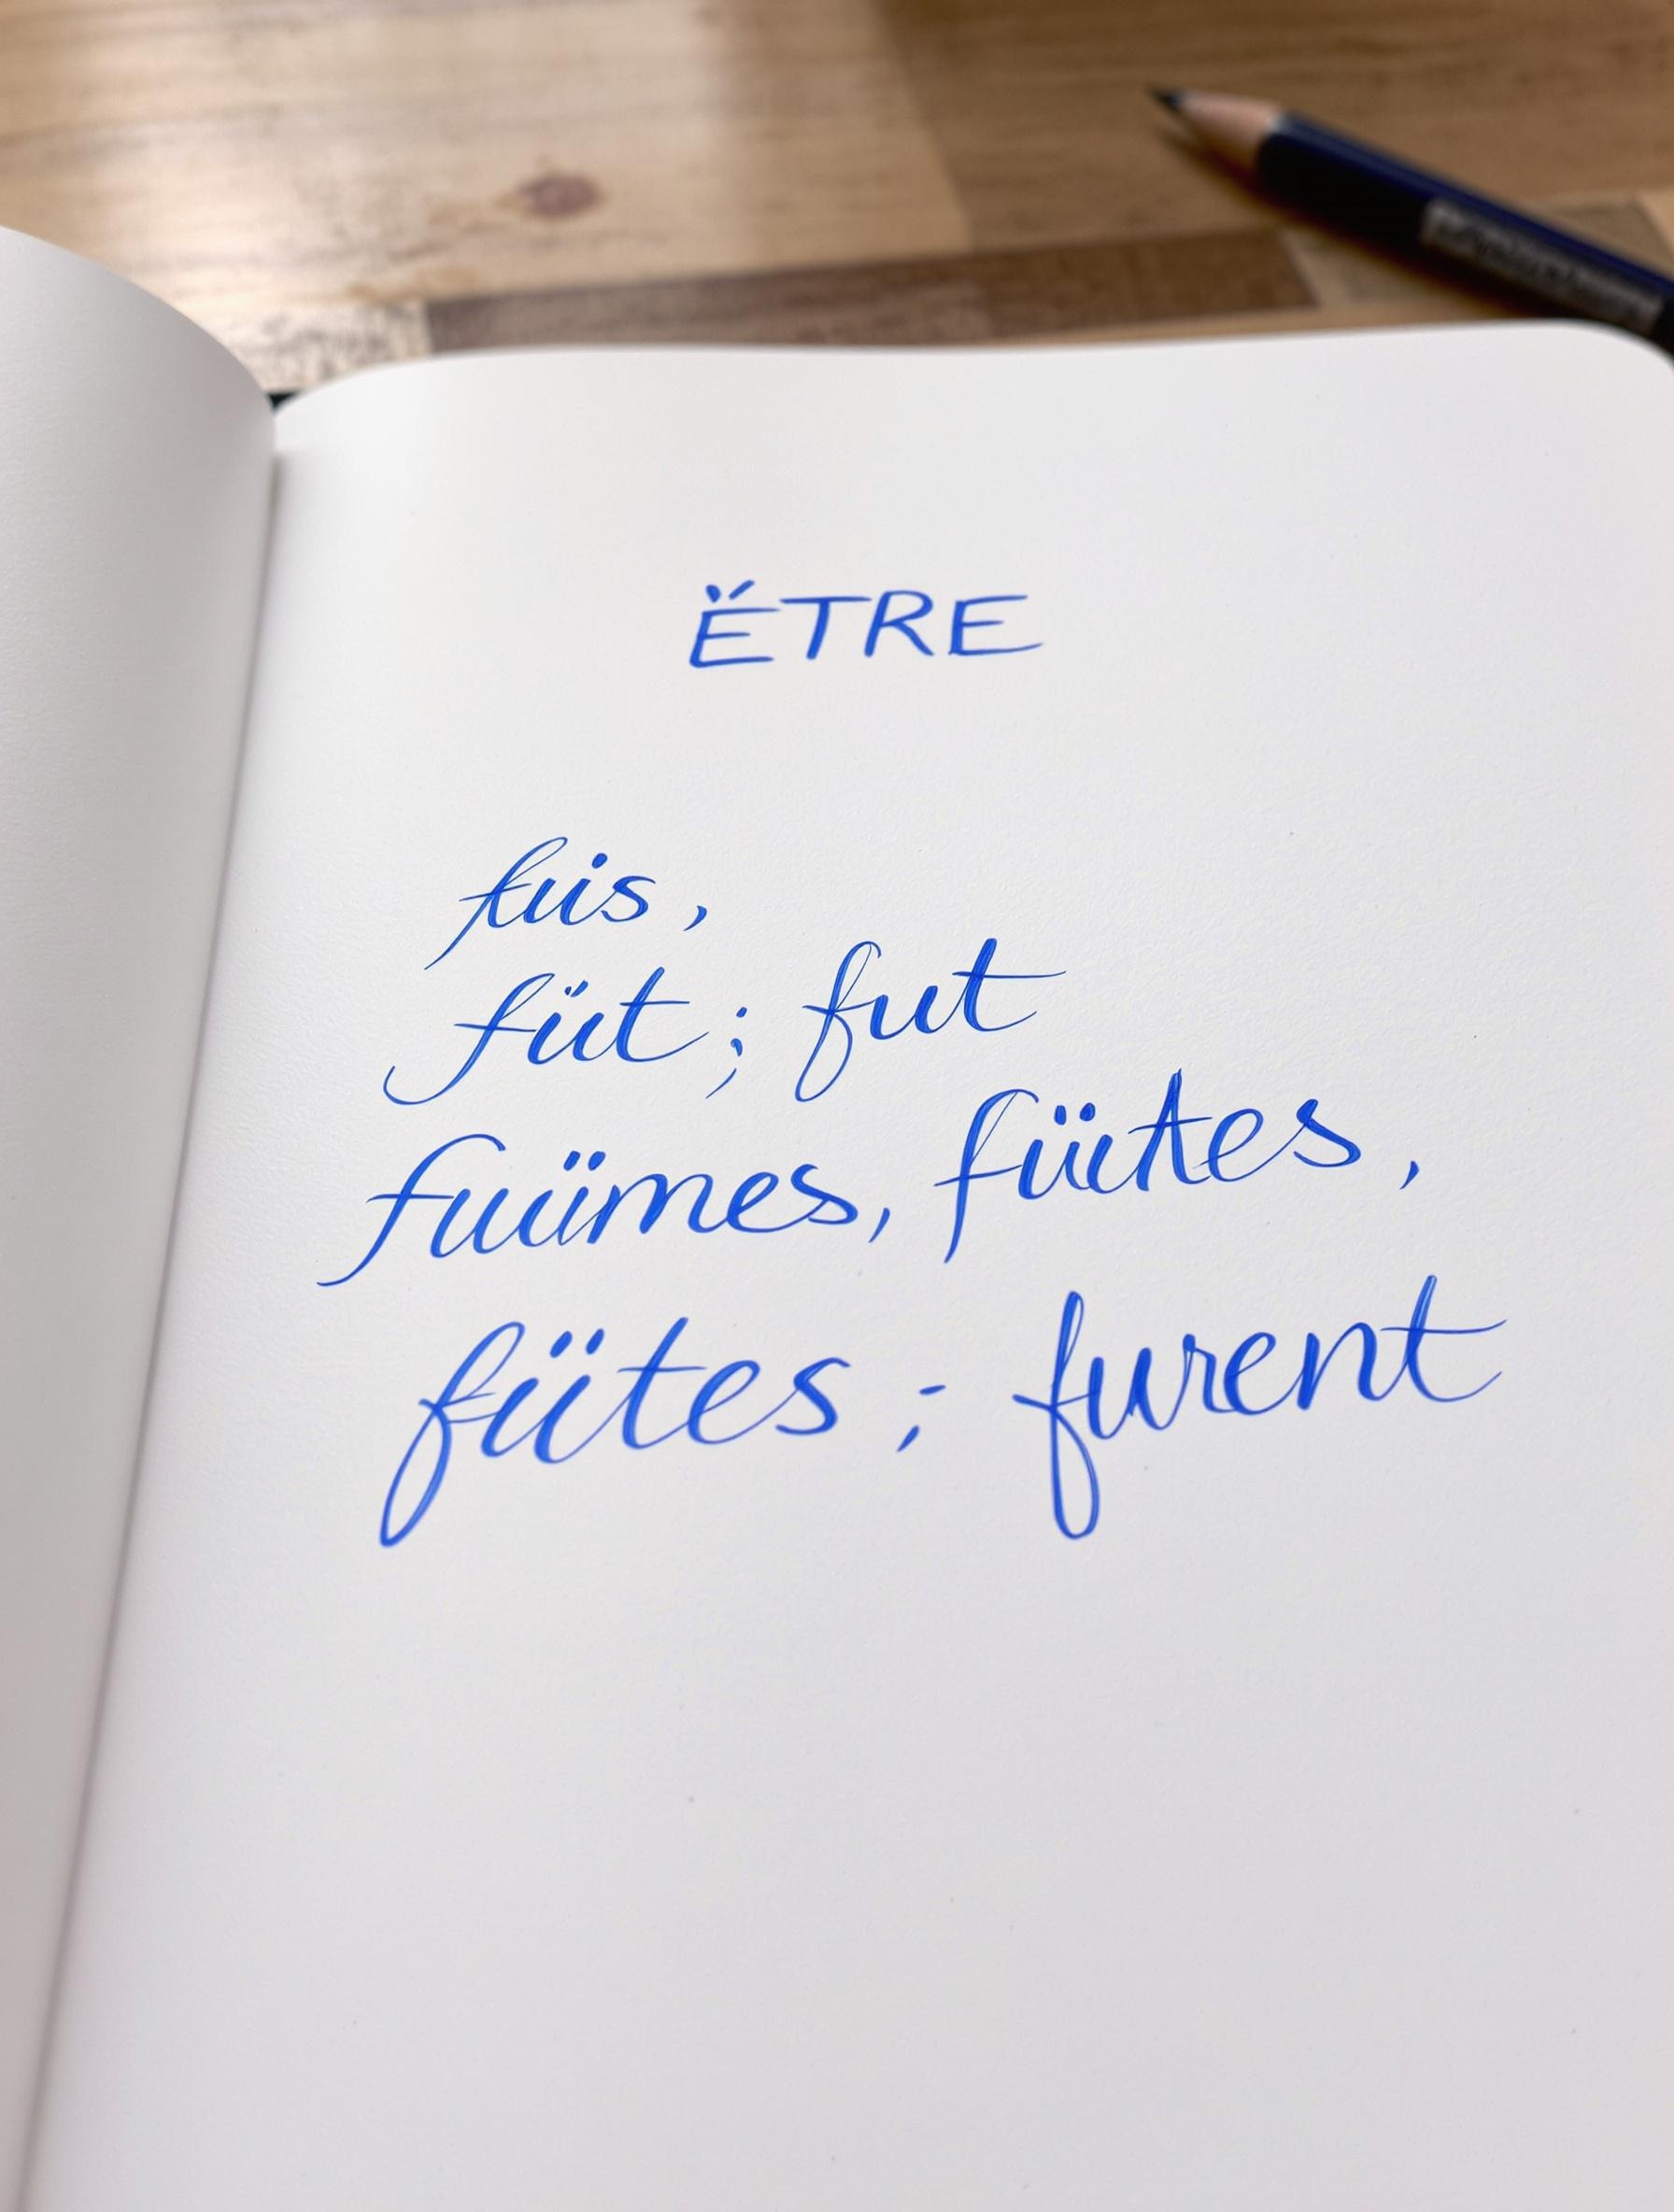 ËTRE
fuis,
füt; fut
fuümes, füütes,
fütes; furent